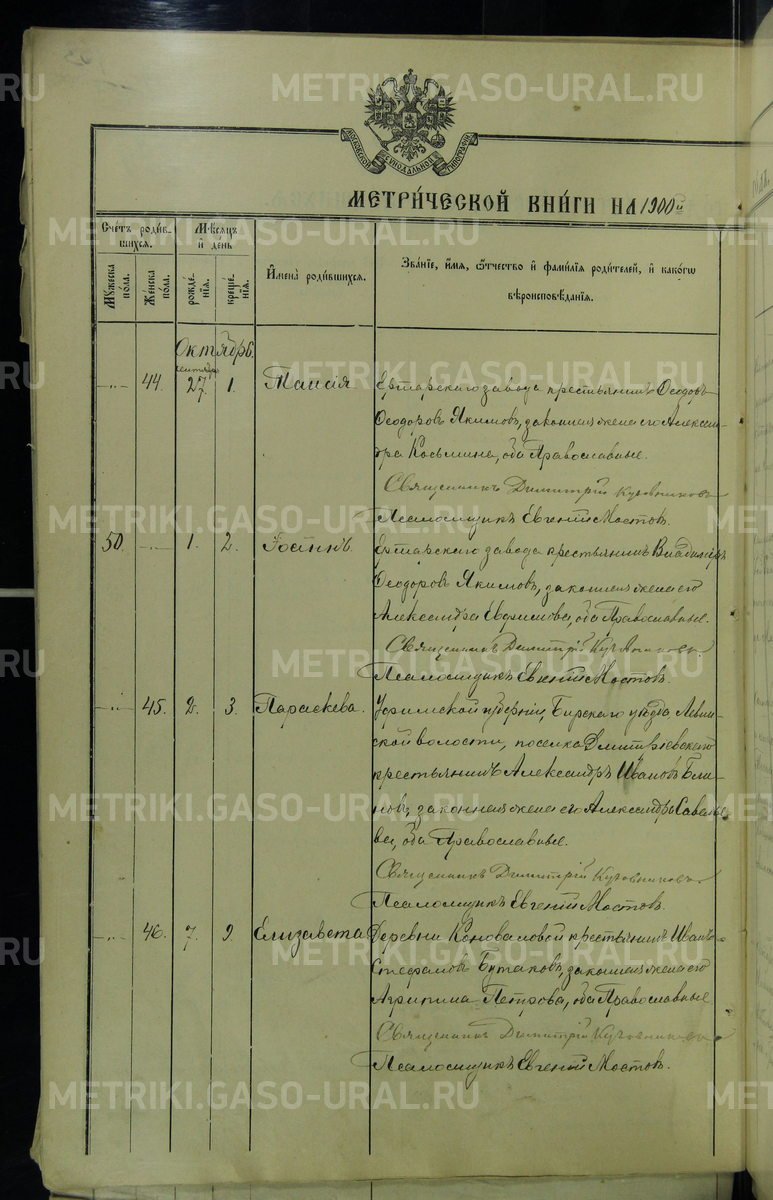 МОСКОВСКОЙ СѴНОДАЛЬНОЙ ТИПОГРАФІИ
МЕТРИ́ЧЕСКОЙ КНИ́ГИ НА 1900 й
Сче́тъ роди́в-
шихся.
Мꙋ́жеска по́ла.
Же́нска по́ла.
Мѣ́сяцъ
и҆ де́нь
рожде́-
нїя.
креще́-
нїя.
И҆мена̀ роди́вшихся.
Зва́нїе, и҆́мя, ѻ҆́тчество и҆ фами́лїя роди́телей, и҆ како́гѡ
вѣроисповѣ́данїя.
Октябрь.
сентября
-„- 44. 27. 1. Таисія Ертарскаго завода крестьянинъ Ѳеодоръ
Ѳеодоровъ Якимовъ, законная жена его Алексан-
дра Косьмина, оба Православные.
Священникъ Димитрій
Псаломщикъ Евгеній Мостовъ.
50. -„- 1. 2. Іоаннъ. Ертарскаго завода крестьянинъ Владиміръ
Ѳеодоровъ Якимовъ, законная жена его
Александра Ефимова, оба Православные.
Священникъ Димитрій
Псаломщикъ Евгеній Мостовъ.
-„- 45. 2. 3. Параскева. Уфимской губерніи, Бирскаго уѣзда
ской волости, поселка Дмитріевскаго
крестьянинъ Александръ Ивановъ Бли-
новъ, законная жена его Александра Савелье-
ва, оба Православные.
Священникъ Димитрій
Псаломщикъ Евгеній Мостовъ.
-„- 46. 7. 9. Елизавета Деревни Коноваловой крестьянинъ Иванъ
Стефановъ Бутаковъ, законная жена его
Агрипина Петрова, оба Православные
Священникъ Димитрій
Псаломщикъ Евгеній Мостовъ.
METRIKI.GASO-URAL.RU